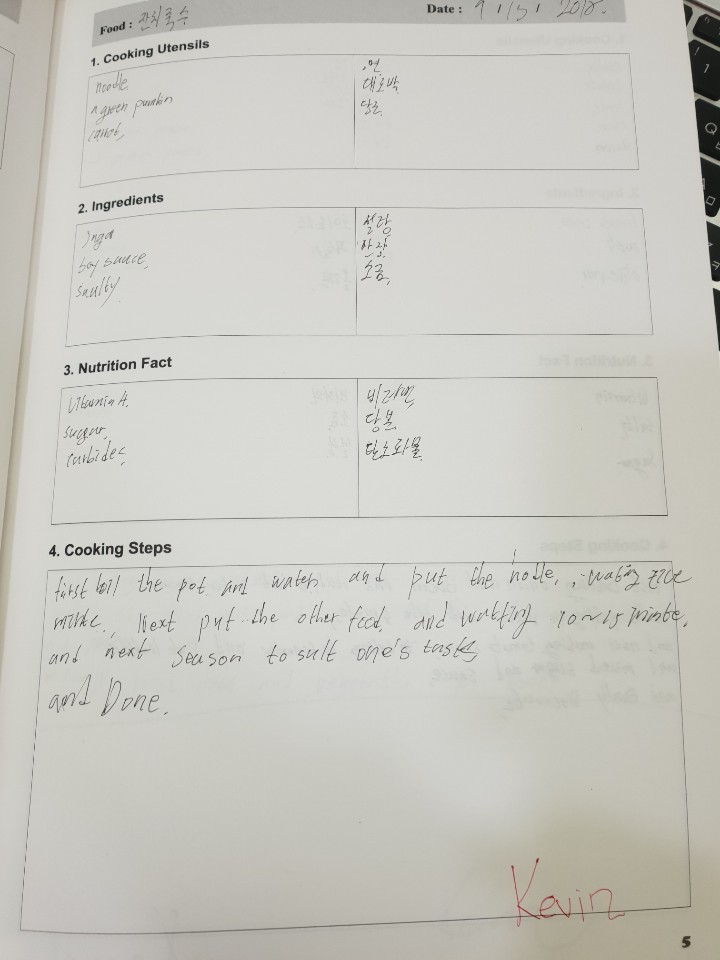 Food : 잔치국수
Date : 9 / 5 / 2018.
1. Cooking Utensils
noodle
면
a green pumkin
대호박
carrot,
당근.
2. Ingredients
설탕
soy sauce,
간장
saulty
소금,
3. Nutrition Fact
Vitamin A.
비타민
sugar,
당분
carbides,
탄소화물
4. Cooking Steps
first boil the pot and water and put the nodle, wating five
minute, Next put the other food and waitting 10~15 minute,
and next season to suit one's taste,
and Done.
Kevin
5